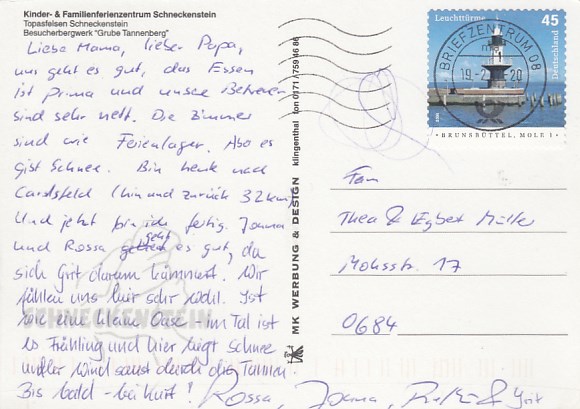 Kinder- & Familienferienzentrum Schneckenstein
Topasfelsen Schneckenstein
Besucherbergwerk "Grube Tannenberg"
Liebe Mama, lieber Papa,
uns geht es gut, das Essen
ist prima und unsere Betreuer
sind sehr nett. Die Zimmer
sind wie Ferienlager. Abo es
gibt Schnee. Bin heute nach
Carlsfeld (hin und zurück 32 km)
Und jetzt bin ich fertig. Joanna
und Rossa geht es gut, da
sich Grit darum kümmert. Wir
fühlen uns hier sehr wohl. Ist
wie eine kleine Oase - im Tal ist
es Frühling und hier liegt Schnee
und der Wind saust durch die Tannen
Bis bald - bei Kurt! Rossa, Joanna, & Grit
SCHNECKENSTEIN
MK WERBUNG & DESIGN klingenthal fon 0171/7591686
Leuchttürme 45
Deutschland
BRUNSBÜTTEL, MOLE 1
BRIEFZENTRUM 08
19.-2. -20
Fam
Thea & Egbert Müller
Mohsstr. 17
0684